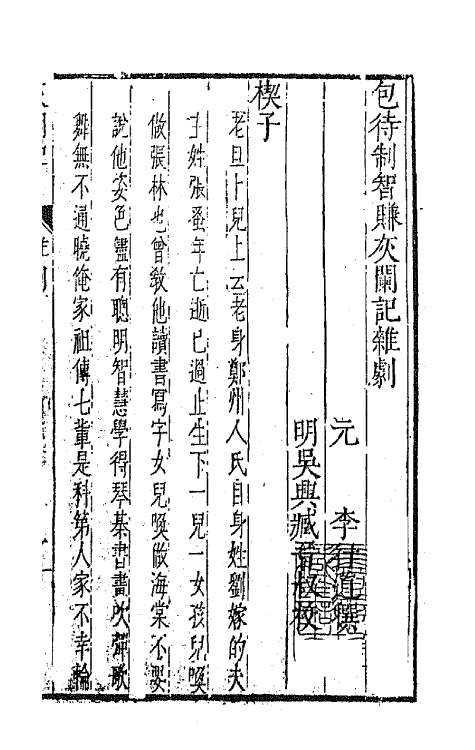 包待制智賺灰闌記雜劇
元 李行道撰
明吳興臧晉叔校
楔子
老旦卜兒上云老身鄭州人氏自身姓劉嫁的夫
主姓張蚤年亡逝已過止生下一兒一女孩兒喚
做張林也曾敎他讀書寫字女兒喚做海棠不要
說他姿色儘有聰明智慧學得琴棊書畫吹彈歌
舞無不通曉俺家祖傳七輩是科第人家不幸輪